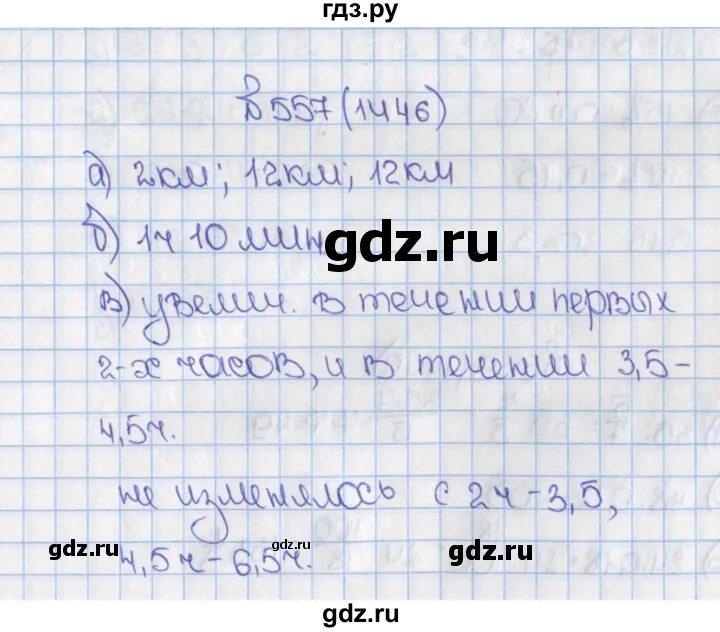 гдз.ру
№557 (1446)
а) 2км; 12км; 12км
б) 1ч 10 мин
gdz.ru
в) увелич. в течении первых
2-х часов, и в течении 3,5-
4,5ч.
не изменялось с 2ч-3,5,
4,5ч-6,5ч.
gdz.ru
gdz.ru
gdz.ru
gdz.ru